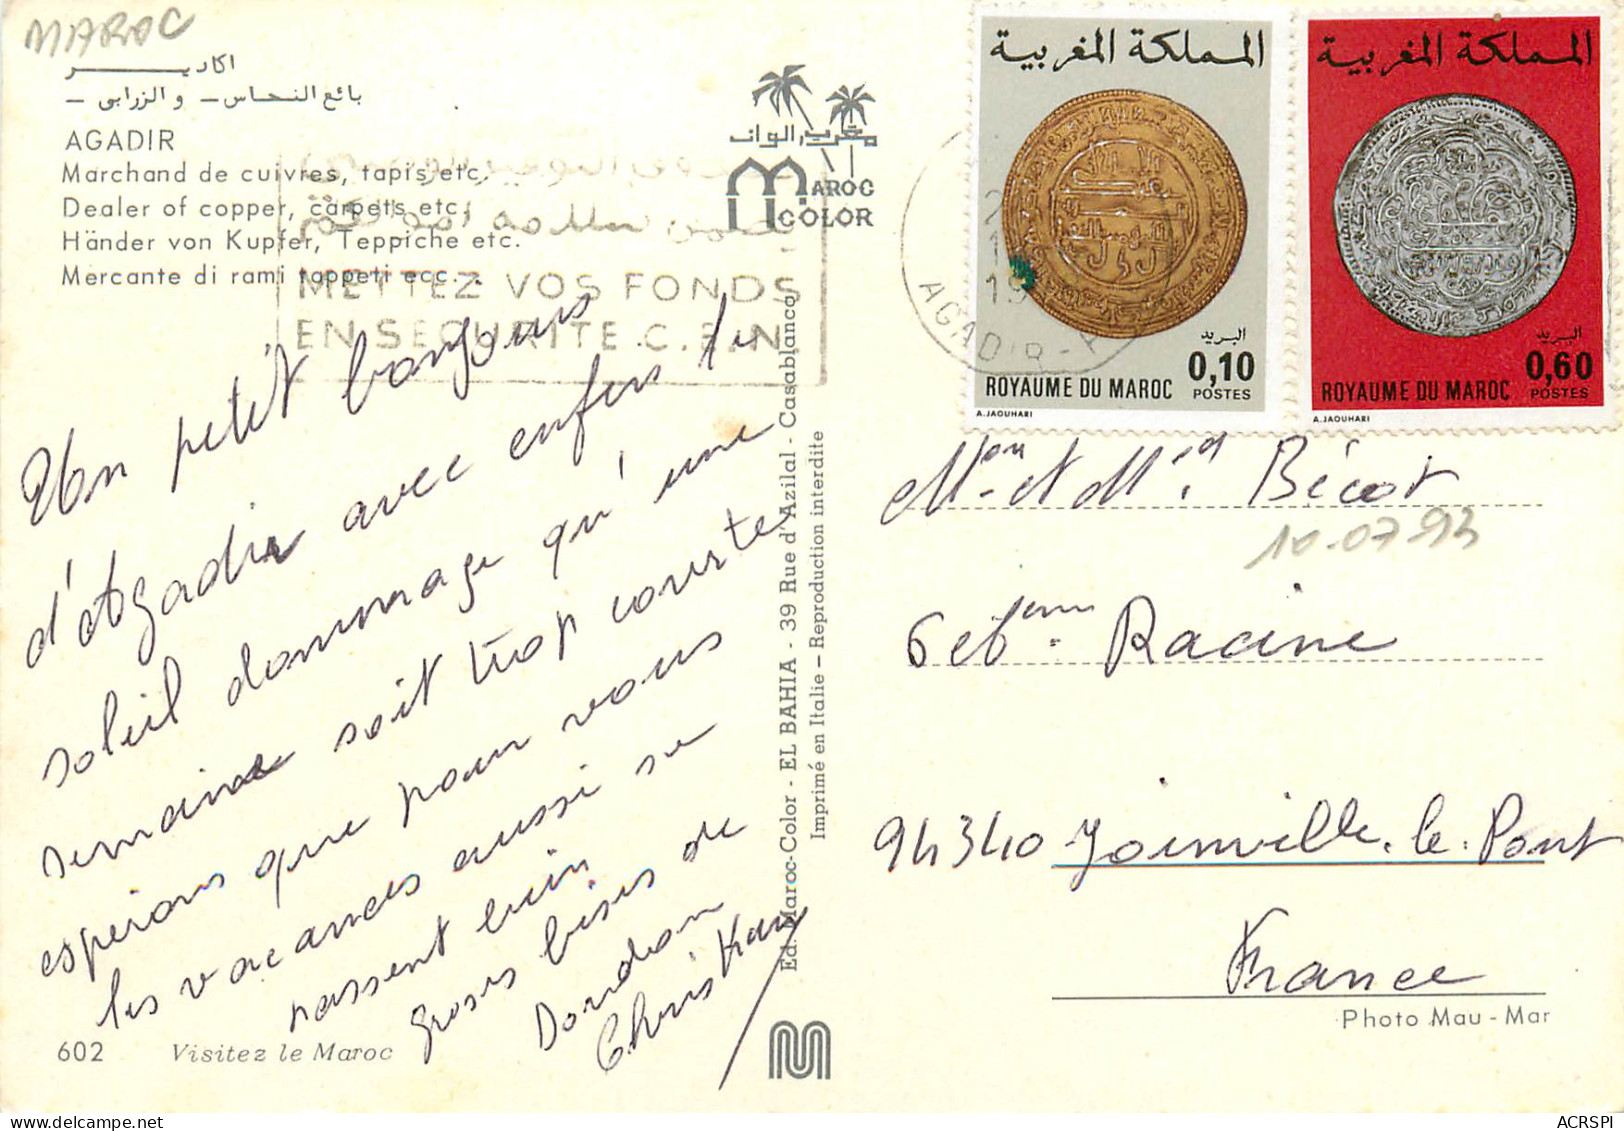 MAROC
اكاديـــر
بائع النحاس – والزرابي –
AGADIR
Marchand de cuivres, tapis etc.
Dealer of copper, carpets etc.
Händer von Kupfer, Teppiche etc.
Mercante di rami tappeti ecc.
METTEZ VOS FONDS
EN SECURITE C.E.N.
مغرب الوان
MAROC
COLOR
AGADIR-P
المملكة المغربية
البريد
0,10
ROYAUME DU MAROC POSTES
A.JAOUHARI
المملكة المغربية
البريد
0,60
ROYAUME DU MAROC POSTES
A.JAOUHARI
Un petit bonjour
d'Agadir avec enfin le
soleil dommage qu'une
semaine soit trop courte
espérons que pour vous
les vacances aussi se
passent bien
Groses bises de
Dordan
Christian
Ed. Maroc-Color - EL BAHIA - 39 Rue d'Azilal - Casablanca
Imprimé en Italie – Reproduction interdite
Mon. et Me. Bécot
10.07.93
6 Racine
94340 Joinville.le.Pont
France
Photo Mau - Mar
602 Visitez le Maroc
ACRSPI